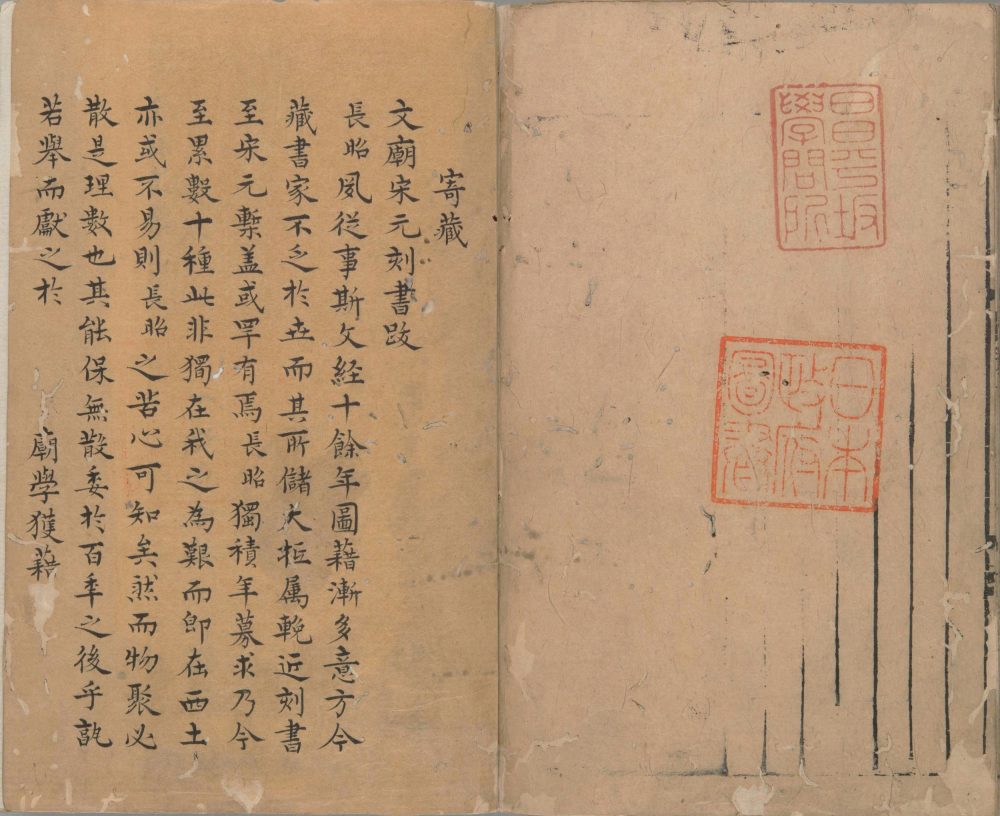 昌平坂
學問所
日本
政府
圖書
寄藏
文廟宋元刻書跋
長昭夙從事斯文經十餘年圖藉漸多意方今
藏書家不乏於世而其所儲大抵屬輓近刻書
至宋元槧盖或罕有焉長昭獨積年募求乃今
至累數十種此非獨在我之為艱而即在西土
亦或不易則長昭之苦心可知矣然而物聚必
散是理數也其能保無散委於百年之後乎孰
若舉而獻之於　廟學獲藉